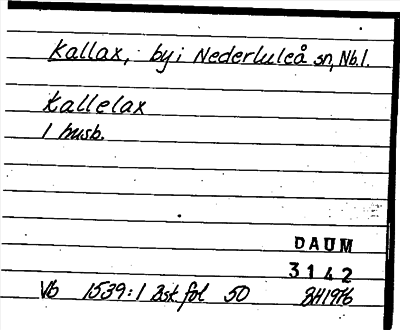 Kallax, by i Nederluleå sn, Nb.l.
Kallelax
1 husb.
DAUM
3142
Vb 1539:1 Bskt fol 50 BH1976